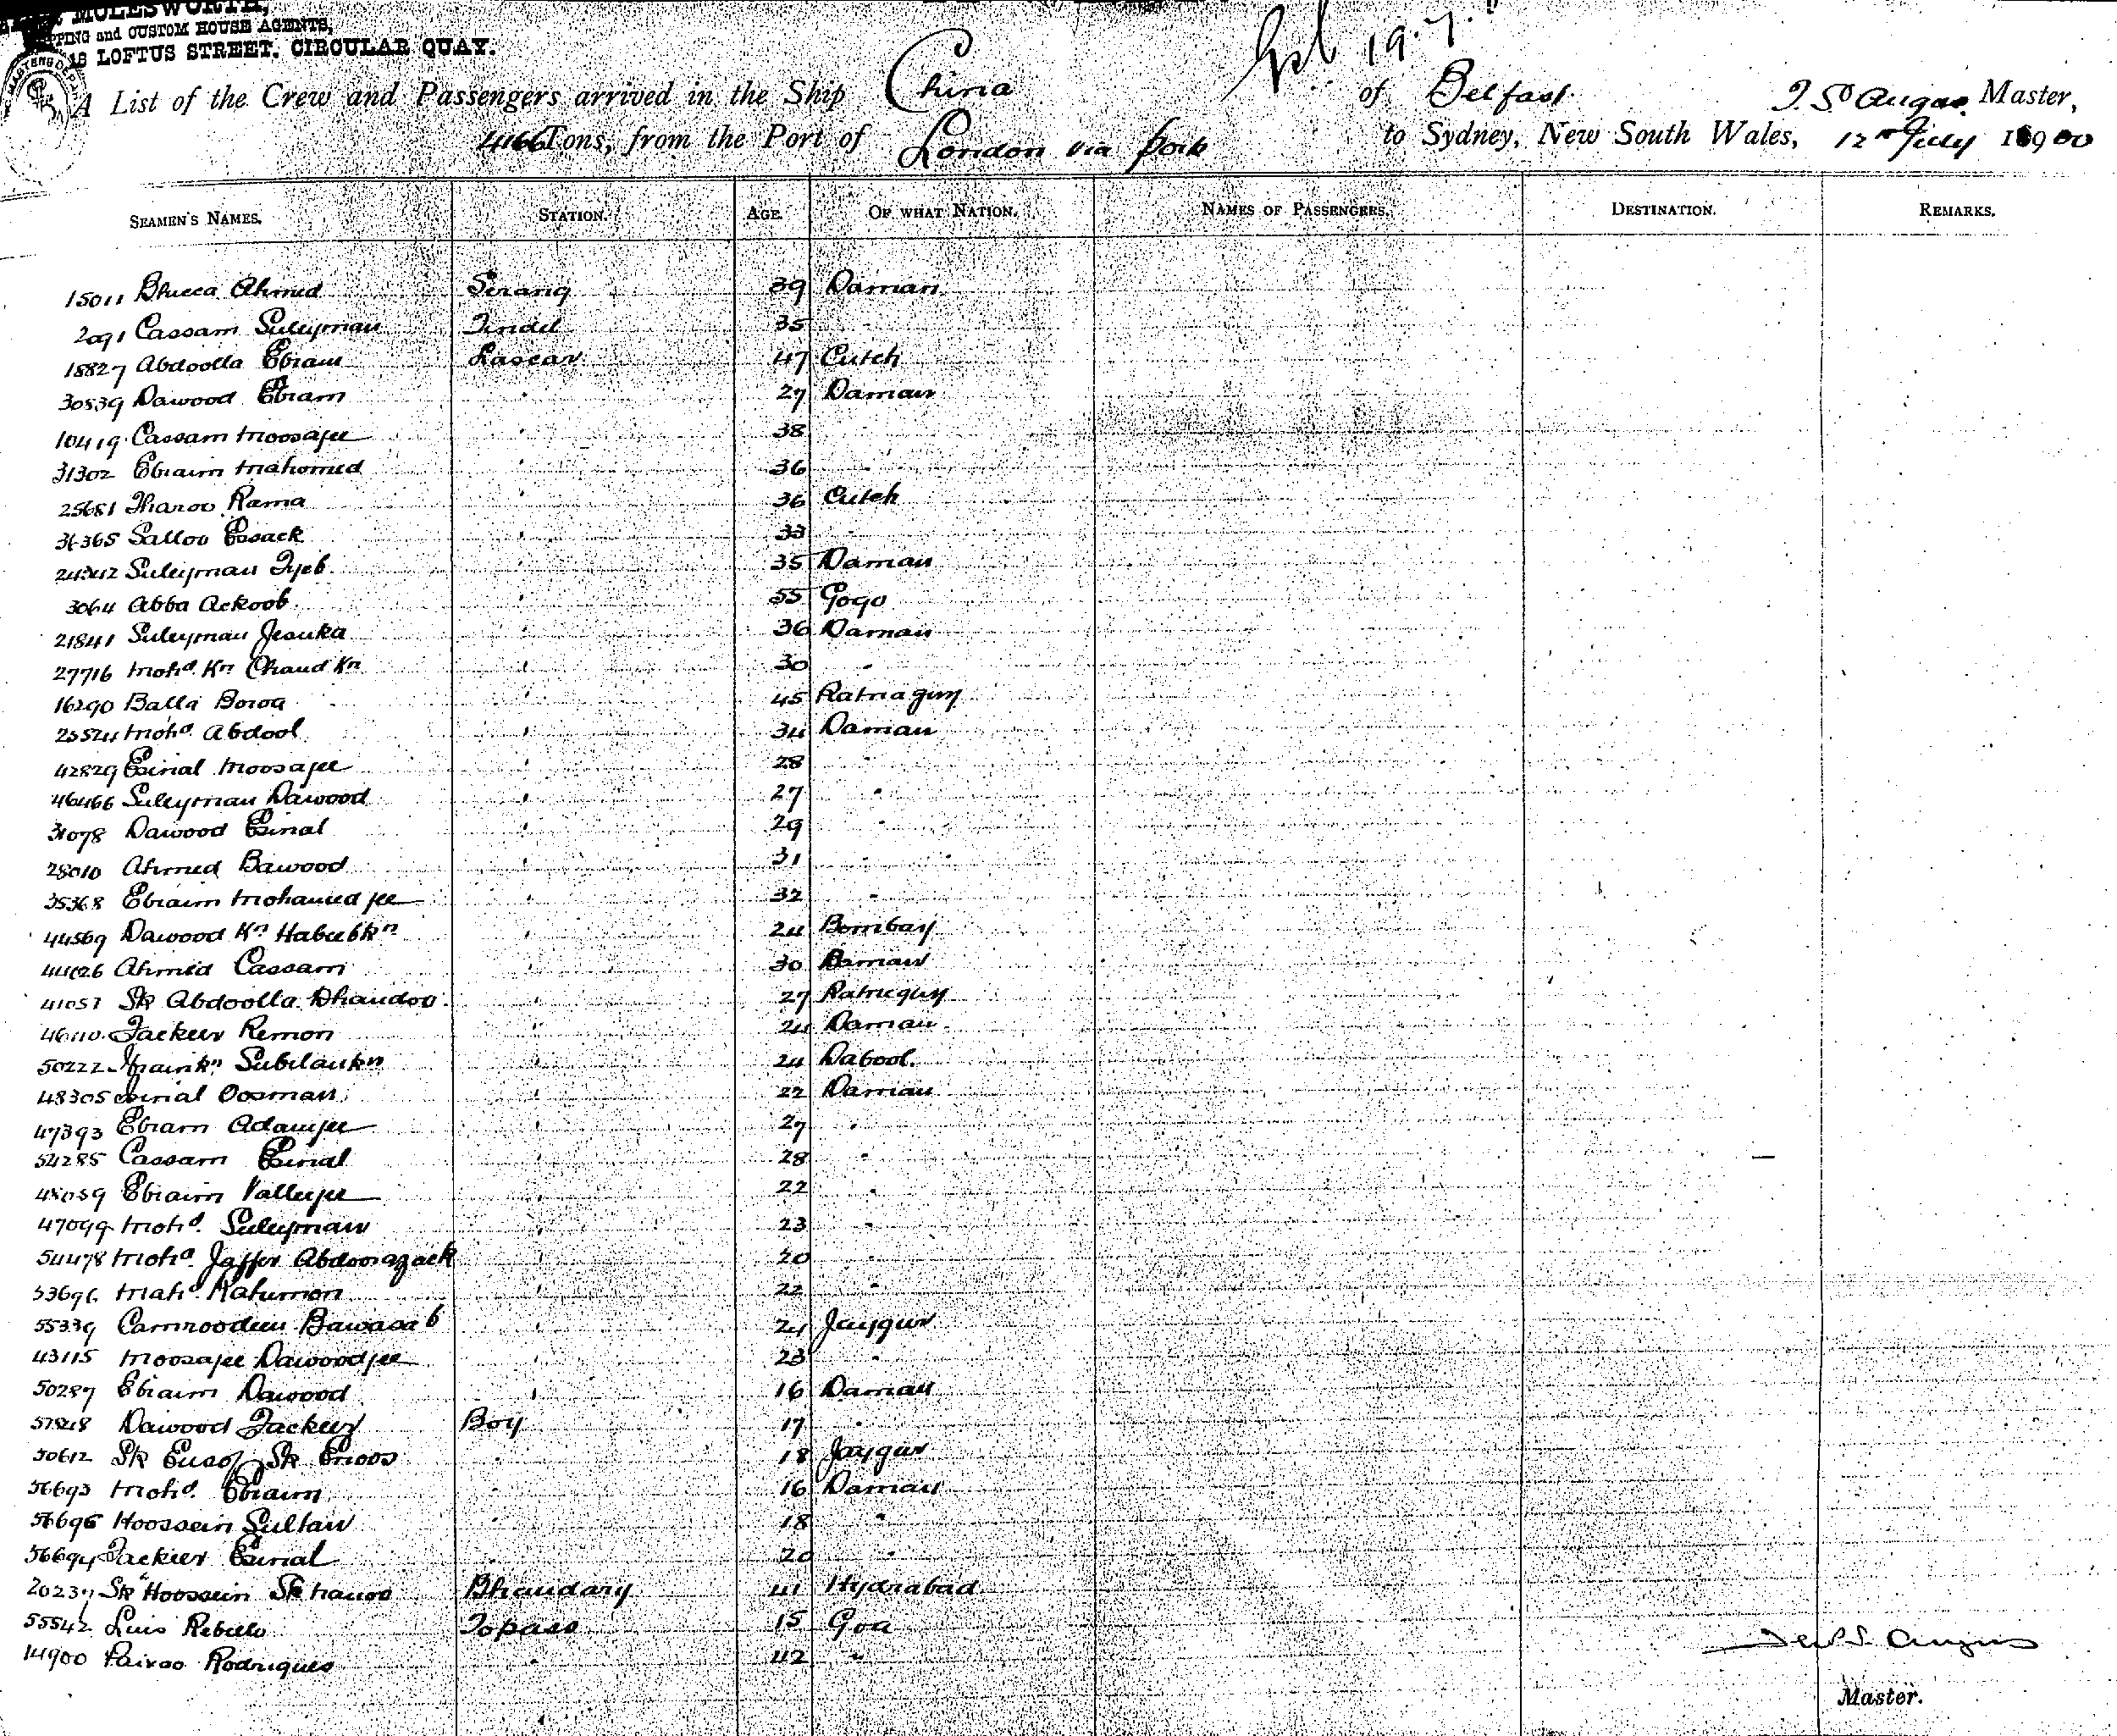 MOLESWORTH,
SHIPPING and CUSTOM HOUSE AGENTS,
18 LOFTUS STREET, CIRCULAR QUAY.
A List of the Crew and Passengers arrived in the Ship China of Belfast Master,
4166 Tons, from the Port of London via ports to Sydney, New South Wales, 12th July 1900
SEAMEN'S NAMES. STATION. AGE. OF WHAT NATION. NAMES OF PASSENGERS. DESTINATION. REMARKS.
15011 Ahmed Serang 39 Daman
2091 Cassam Suleyman Tindel 35
18827 Abdoolla Ebram Lascar 47 Cutch
30839 Dawood Ebram " 27 Daman
10419 Cassam Moosajee " 38
31302 Ebraim Mahomed " 36 "
25681 Tharoo Rama " 36 Cutch
36365 Salloo Esack " 33 "
24342 Suleyman Tyeb " 35 Daman
3064 Abba Ackoob " 55 Gogo
21841 Suleyman Jesuka " 36 Daman
27716 Mohd. Kn Chand Kn " 30 "
16290 Balla " 45
Mohd Abdool " 34 Daman
42829 Esmal Moosajee " 28 "
46466 Suleyman Dawood " 27 "
31078 Dawood Esmal " 29 "
28010 Ahmed Bawood " 31 "
35368 Ebraim Mohamedjee 32 "
44569 Dawood Kn Habeebkn " 24 Bombay
Ahmed Cassam " 30 Daman
41057 Sk Abdoolla Dhandoo " 27
Fackeer Remon " 24 Daman
50222 " 24 Dabool
48305 Esmal Oosman " 22 Daman
47393 Ebram Adamjee " 27 "
54285 Cassam Esmal " 28 "
48059 Ebraim Valleejee " 22 "
47099 Mohd. Suleyman " 23 "
54478 Mohd. Jaffer Abdoorazack " 20 "
Mahd. Rahumon " 22 "
55339 Camroodeen Bawasab " 24 Jaygur
43115 Moosajee Dawoodjee " 23 "
50287 Ebraim Dawood " 16 Daman
57848 Dawood Fackeer Boy 17 "
50612 Sk Eusof Sk Emoos " 18 Jaygur
56693 Mohd. Ebraim " 16 Daman
56696 Hoossein Sultan " 18 "
56694 Fackeer Esmal " 20 "
20237 Sk Hoossein Sk Bhandary 41 Hydrabad
55542 Luis Rebello Topass 15 Goa
14900 Paixao Rodrigues " 42 "
Angus
Master.